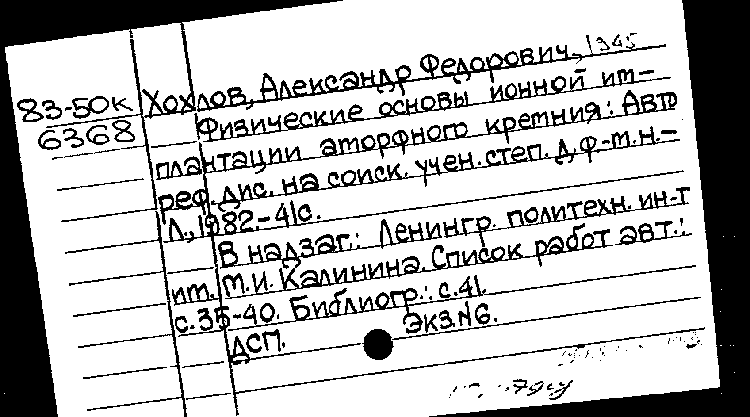 83-50к
6368
Хохлов, Александр Федорович, 1945
Физические основы ионной им-
плантации аморфного кремния: Авто
реф. дис. на соиск. учен. степ. д. ф-м. н.-
Л., 1982.-41с.
В надзаг.: Ленингр. политехн. ин-т
им. М.И. Калинина. Список работ авт.:
с. 35-40. Библиогр.: с. 41.
ДСП. Экз. №6.